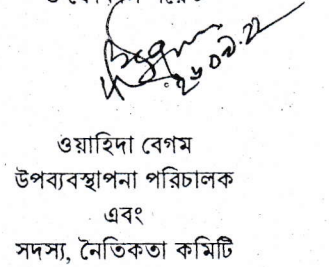 ২৬.০৯.২২
ওয়াহিদা বেগম
উপব্যবস্থাপনা পরিচালক
এবং
সদস্য, নৈতিকতা কমিটি